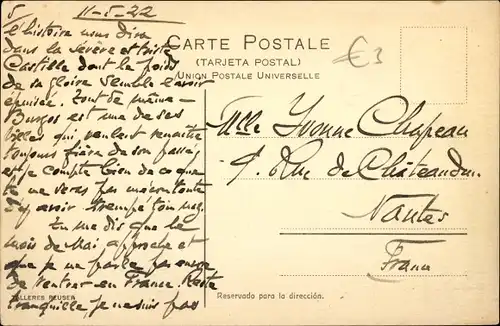 11-5-22
l'histoire nous dira
dans la sévère et triste
Castille dont le poids
de sa gloire semble l'avoir
épuisée. Tout de même
Burgos est une de ses
villes qui veulent renaître
toujours fière de son passé,
et je compte bien ce que
te ne veras pas mécontente
d'y avoir trempé ton nez.
Tu me dis que le
mois de Mai approche et
que je ne parle pas encore
de rentrer en France. Reste
tranquille, je ne suis pas
TALLERES REUSER
CARTE POSTALE
(TARJETA POSTAL)
UNION POSTALE UNIVERSELLE
€3
Mlle Yvonne Chapeau
9. Rue de Châteaudun.
Nantes
France
Reservado para la dirección.